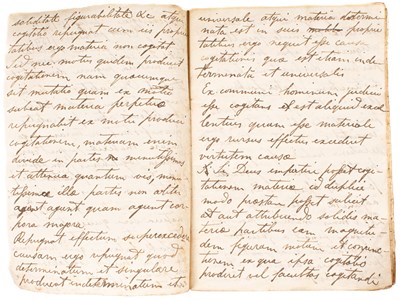 soliditate figurabilitate &c atqui
cogitatio repugnat cum iis proprie
tatibus ergo materia non cogitat
Sed nec motus quidem producit
cogitationem nam quacumque
sit mutatio quam ex motu
subeat materia perpetuo
repugnabit ex motu produci
cogitationem, materiam enim
divide in partes minutissimas
et attenua quantum vis, minu
tissimae illa partes non aliter
agent quam agent cor
pora majora
Repugnat effectum superexcedere
causam ergo repugnat quod
determinatum et singulare
producat indeterminatum et
universale atqui materia determi
nata est in suis proprie
tatibus ergo nequit esse causa
cogitationis qua est etiam inde
terminata et universalis
Ex communi hominum judicio
esse cogitans est aliquid exce
lentius quam esse materiale
ergo rursus effectus excederet
virtutem causa
Si Deus impertiri posset cogi
tationem materia id duplici
modo prestari posset scilicet
aut attribuendo solidis ma
teria partibus eam magnitu
dinem figuram motum et conjunc
tionem ex qua ipsa cogitatio
prodiret vel facultas cogitandi